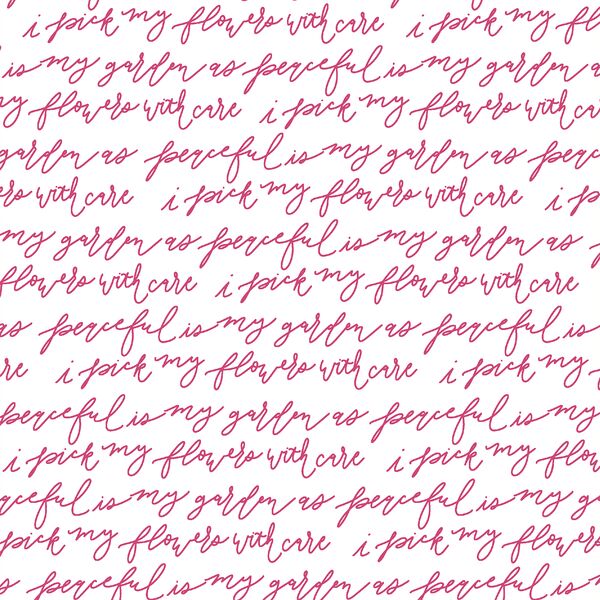 i pick my flowers with care i pick my fl
is my garden as peaceful is my garden a
my flowers with care i pick my flowers with ca
garden as peaceful is my garden as peac
ers with care i pick my flowers with care i p
my garden as peaceful is my garden as
flowers with care i pick my flowers with care
as peaceful is my garden as peaceful is
re i pick my flowers with care i pick my
peaceful is my garden as peaceful is my
i pick my flowers with care i pick my flow
aceful is my garden as peaceful is my g
pick my flowers with care i pick my flowers
s peaceful is my garden as peaceful is